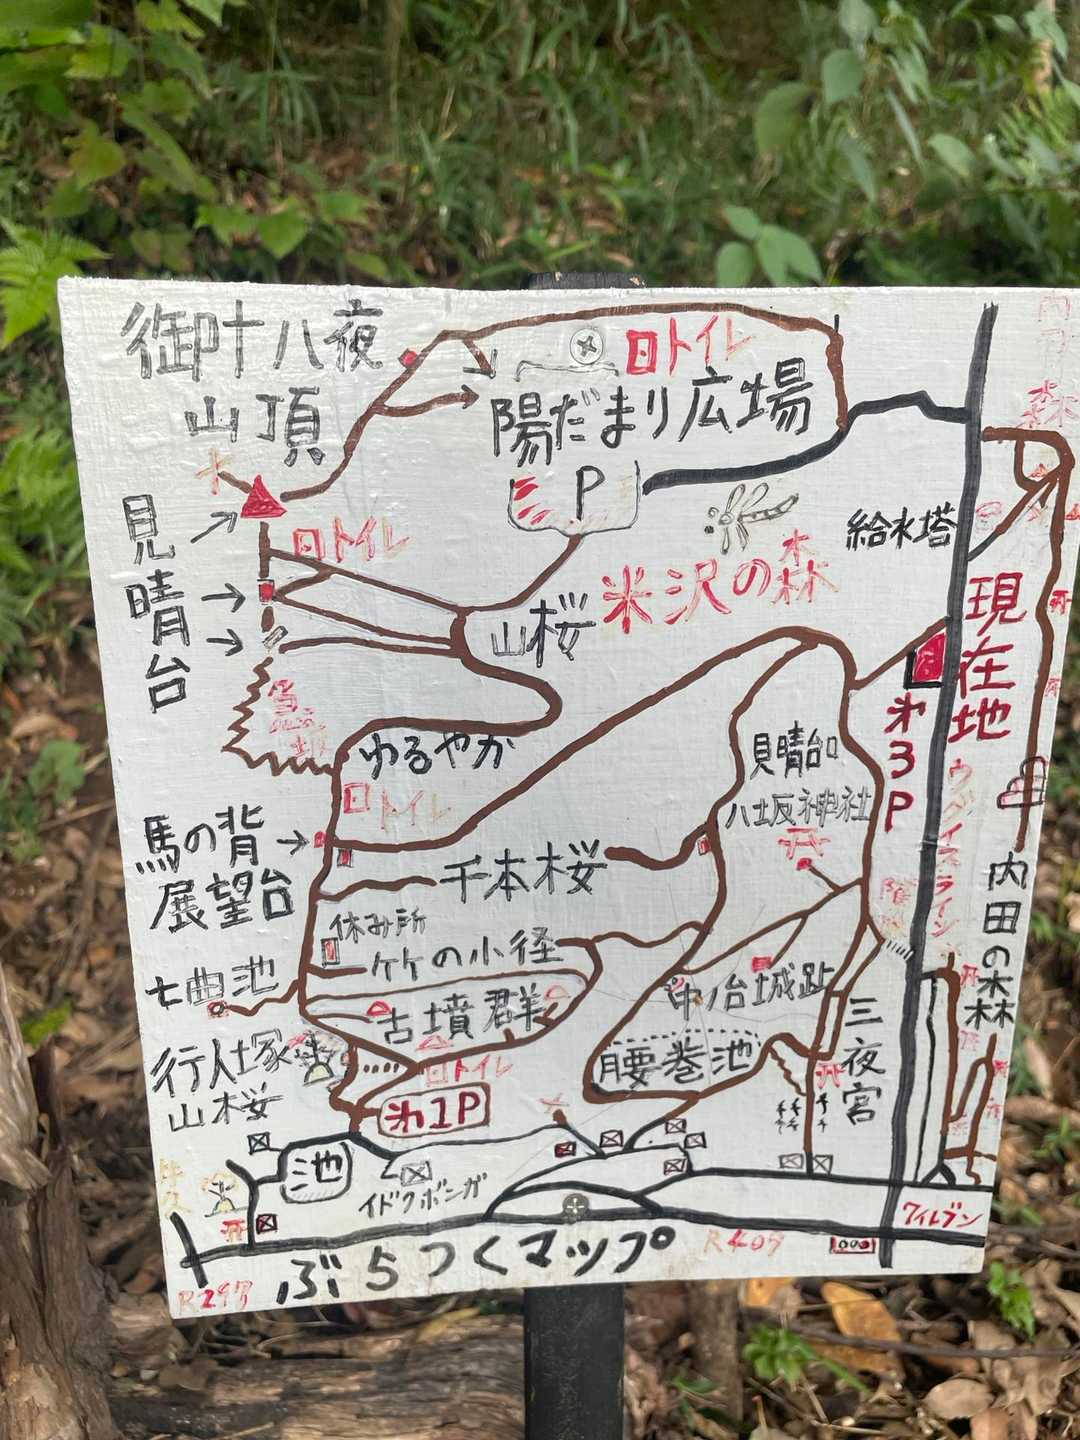 御十八夜
山頂
トイレ
陽だまり広場
P
森
見晴台
トイレ
給水塔
米沢の森
山桜
現在地
急坂
ゆるやか
第3P
トイレ
見晴台
八坂神社
馬の背
展望台
千本桜
ウグイスライン
内田の森
休み所
竹の小径
七曲池
古墳群
城趾
三夜宮
腰巻池
行人塚
山桜
トイレ
第1P
池
イドクボンガ
牛久
ワイルブン
ぶらつくマップ
R409
R297